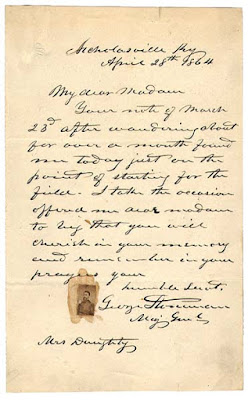 Nicholasville Ky
April 28th 1864
My dear Madam
Your note of March
23d after wandering about
for over a month found
me today just on the
point of starting for the
field. I take the occasion
offered me dear madam
to beg that you will
cherish in your memory
and remember in your
prayers your
humble Servt.
George Stoneman
Maj Genl
Mrs Doughty